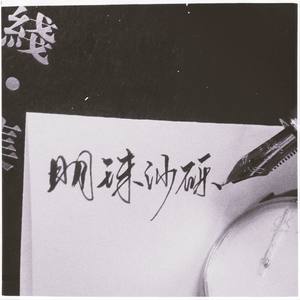 綫
明珠沙砾